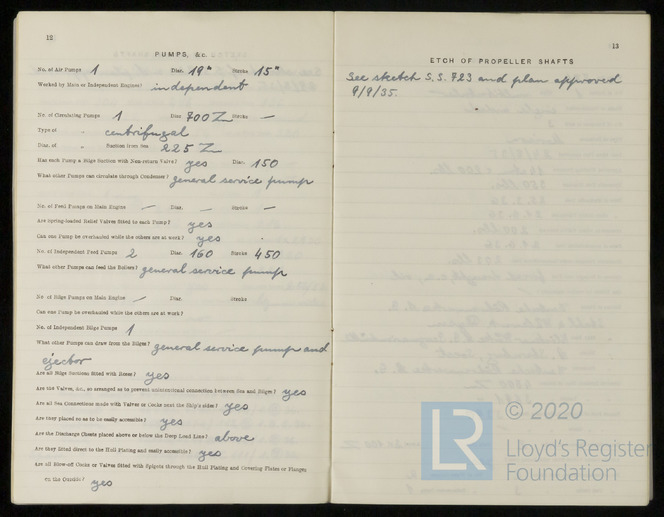 12
PUMPS, &c.
No. of Air Pumps 1 Dia. 19" Stroke 15"
Worked by Main or Independent Engines? independent
No. of Circulating Pumps 1 Dia. 700 Stroke —
Type of " centrifugal
Diar. of " Suction from Sea 225
Has each Pump a Bilge Suction with Non-return Valve? yes Diar. 150
What other Pumps can circulate through Condenser? general service pump
No. of Feed Pumps on Main Engine — Diar. — Stroke —
Are Spring-loaded Relief Valves fitted to each Pump? yes
Can one Pump be overhauled while the others are at work? yes
No. of Independent Feed Pumps 2 Diar. 160 Stroke 450
What other Pumps can feed the Boilers? general service pump
No. of Bilge Pumps on Main Engine — Diar. Stroke
Can one Pump be overhauled while the others are at work?
No. of Independent Bilge Pumps 1
What other Pumps can draw from the Bilges? general service pump and
ejector
Are all Bilge Suctions fitted with Roses? yes
Are the Valves, &c., so arranged as to prevent unintentional connection between Sea and Bilges? yes
Are all Sea Connections made with Valves or Cocks next the Ship's sides? yes
Are they placed so as to be easily accessible? yes
Are the Discharge Chests placed above or below the Deep Load Line? above
Are they fitted direct to the Hull Plating and easily accessible? yes
Are all Blow-off Cocks or Valves fitted with Spigots through the Hull Plating and Covering Plates or Flanges
on the Outside? yes
13
ETCH OF PROPELLER SHAFTS
See sketch S.S. 723 and plan approved
9/9/35.
© 2020
LR
Lloyd's Register
Foundation